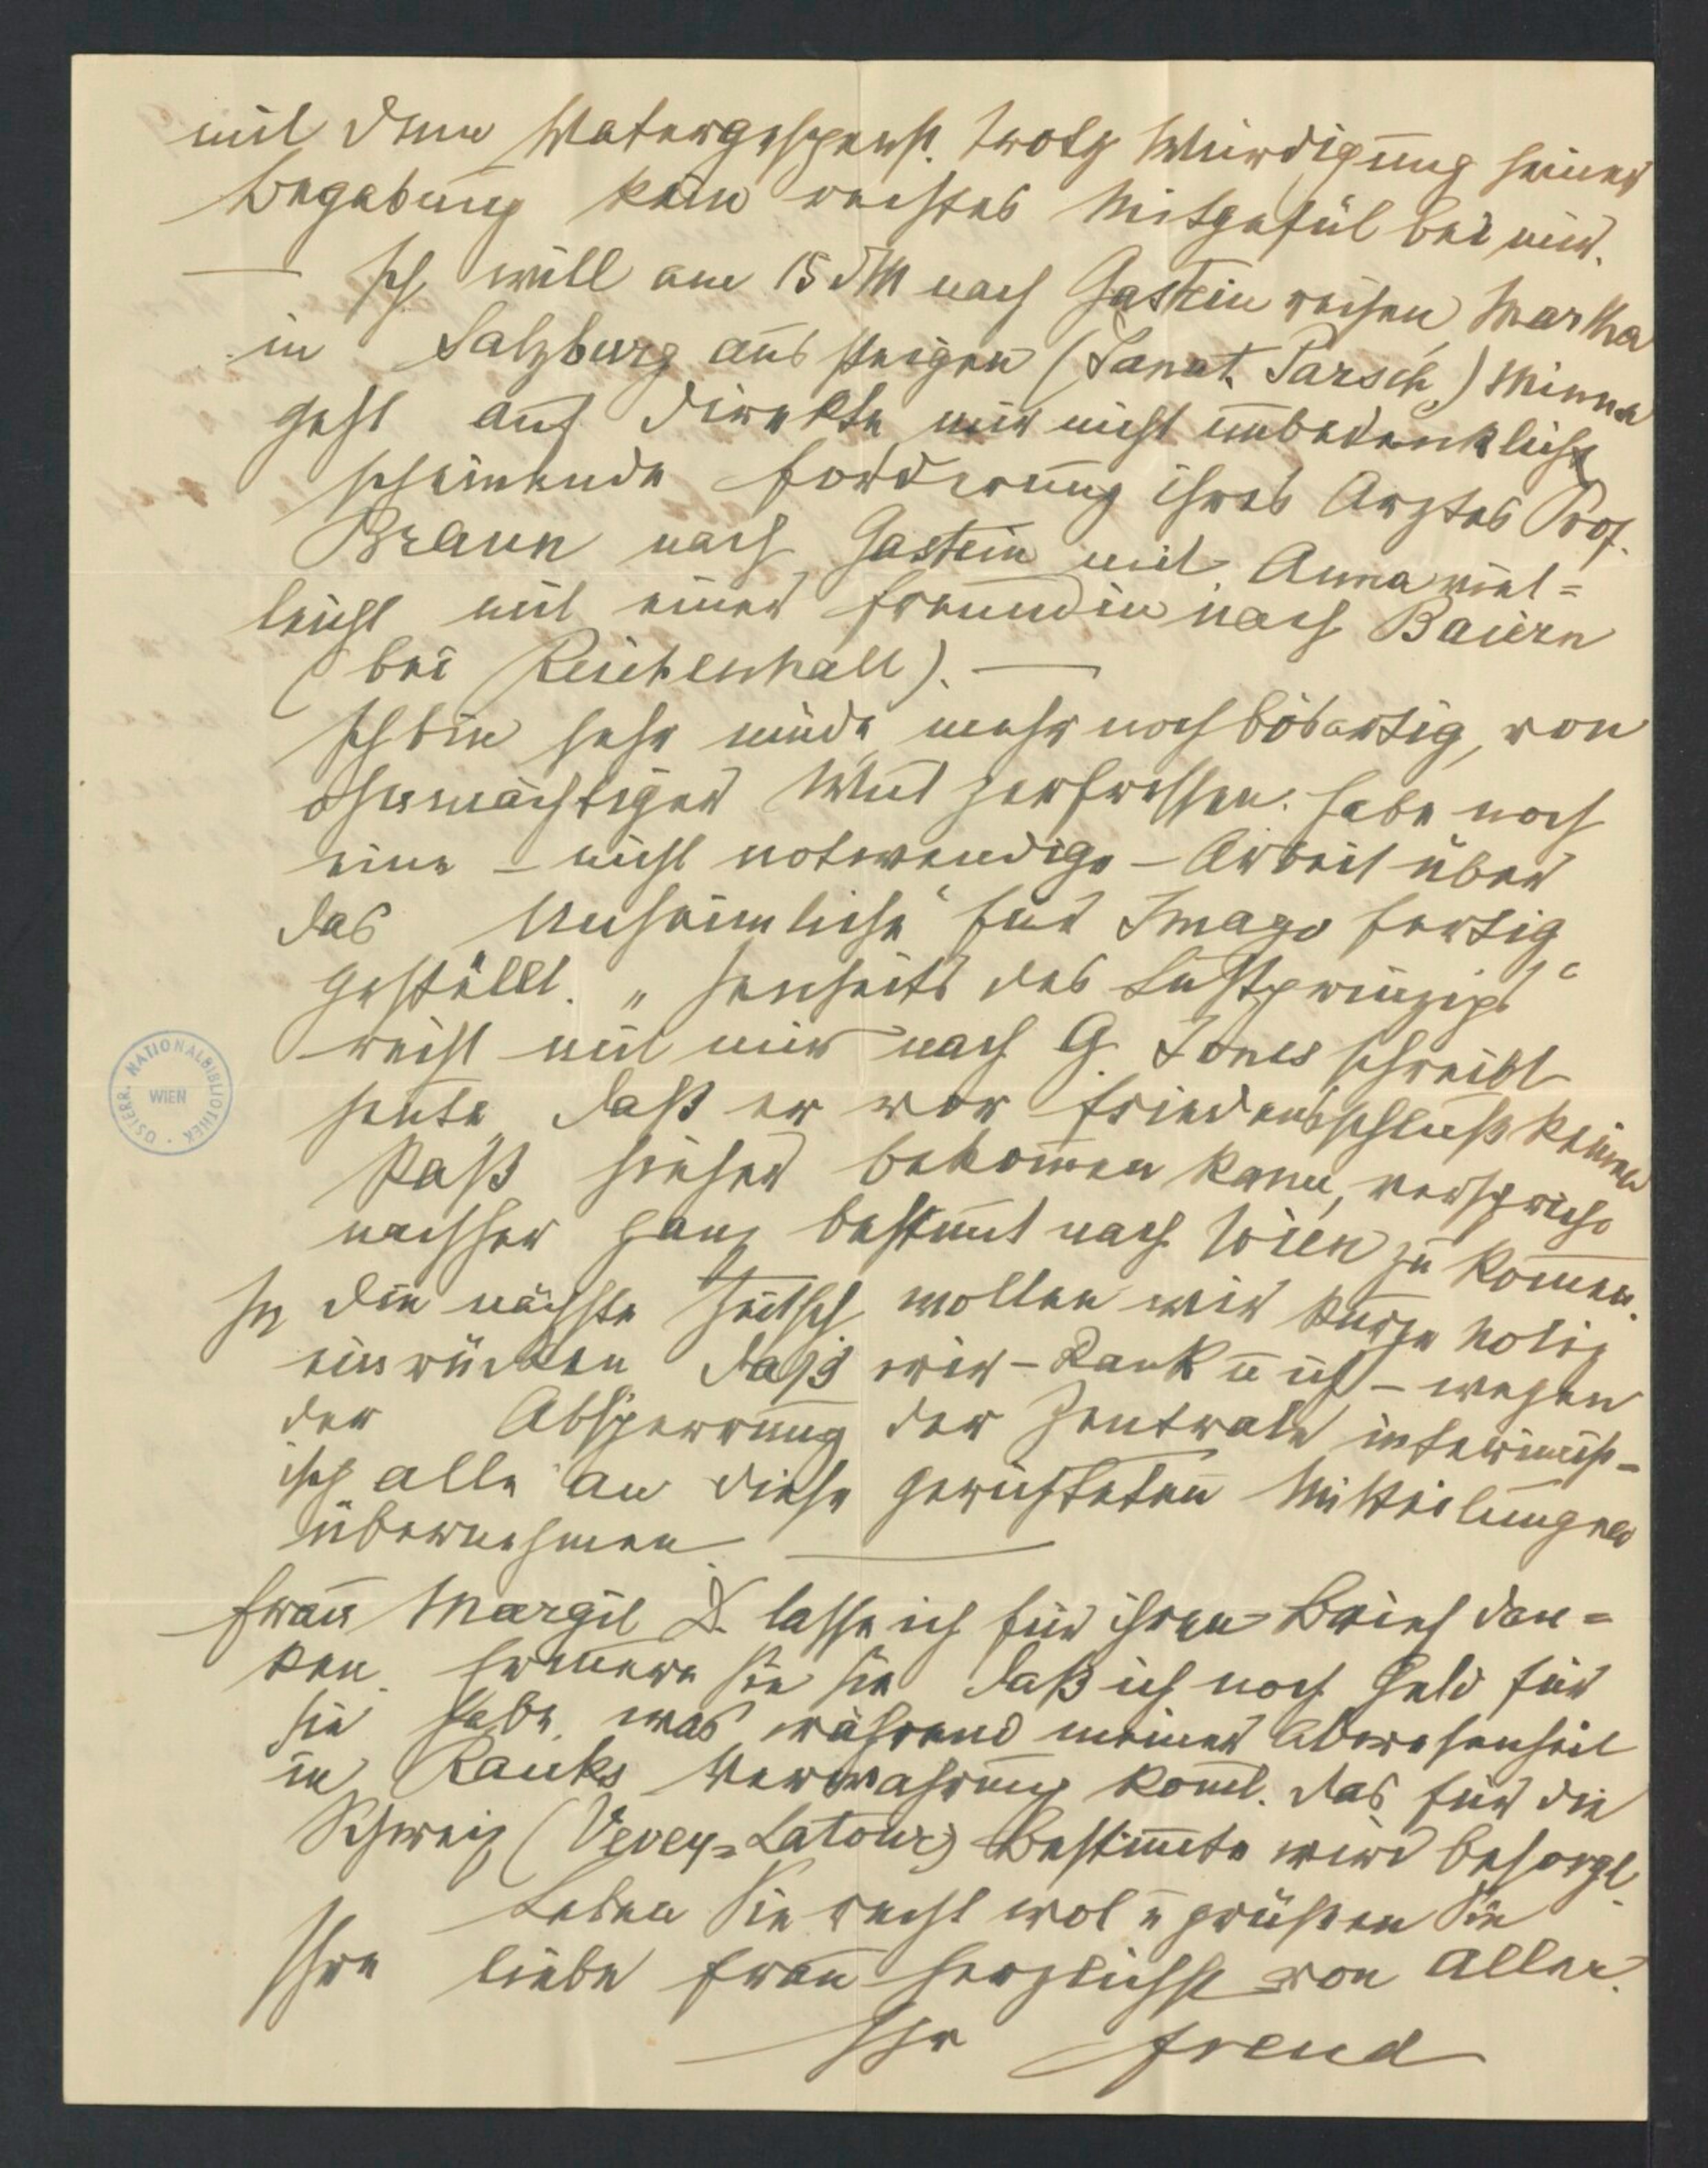 mit dem Vatergespenst. Trotz Würdigung seiner
Begabung kein rechtes Mitgefül bei mir.
— Ich will am 15 d M nach Gastein reisen, Martha
in Salzburg aussteigen (Sanat. Parsch,) Minna
geht auf direkte mir nicht unbedenklich
scheinende Forderung ihres Arztes Prof.
Braun nach Gastein mit, Anna viel=
leicht mit einer Freundin nach Baiern
(bei Reichenhall). —
Ich bin sehr müde, mehr noch bösartig, von
ohnmächtiger Wut zerfressen. Habe noch
eine – nicht notwendige – Arbeit über
das „Unheimliche“ für Imago fertig
gestellt. „Jenseits des Lustprinzips“
reist mit mir nach G. Jones schreibt
heute, daß er vor Friedensschluß keinen
Paß hieher bekom̅en kann, verspricht
nachher ganz bestim̅t nach Wien zu kom̅en.
In die nächste Zeitsch wollen wir kurze Notiz
einrücken daß wir – Rank u ich – wegen
der Absperrung der Zentrale interimist=
isch alle an diese gerichteten Mitteilungen
übernehmen. —
Frau Margit D. lasse ich für ihren Brief dan=
ken. Erinnere Sie sie, daß ich noch Geld für
sie habe, was während meiner Abwesenheit
in Ranks Verwahrung kom̅t. Das für die
Schweiz (Vevey=Latour) Bestim̅te wird besorgt.
Leben Sie recht wol u grüßen Sie
Ihre liebe Frau herzlichst von allen.
Ihr Freud
ÖSTERR. NATIONALBIBLIOTHEK WIEN